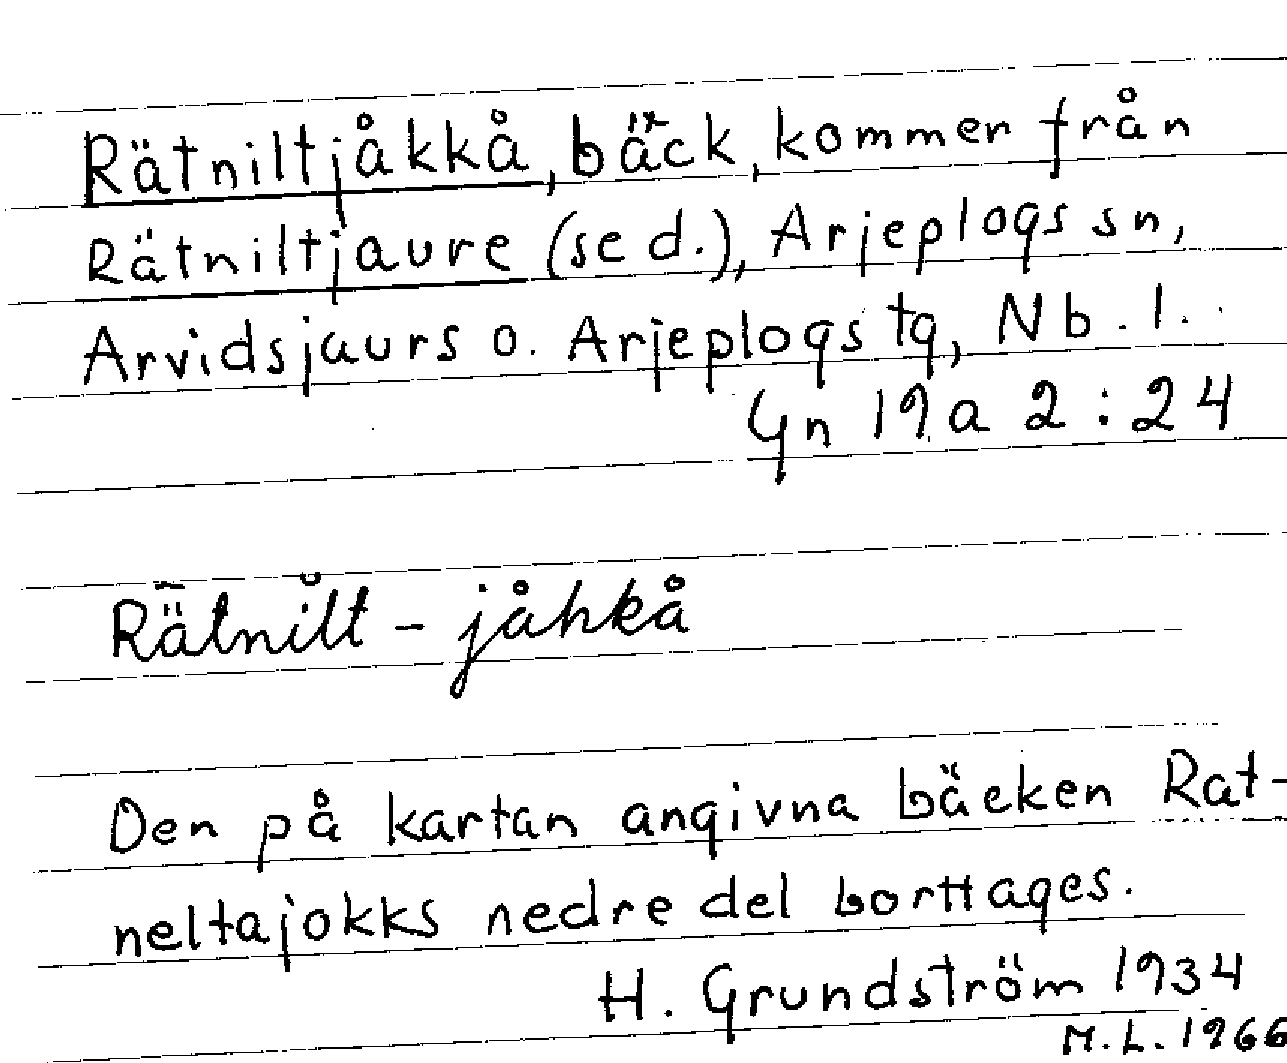 Rätniltjåkkå, bäck, kommer från
Rätniltjaure (se d.), Arjeplogs sn,
Arvidsjaurs o. Arjeplogs tg, Nb. l.
Gn 19 a 2 : 24
Rä̃tnĭlt - jåhkå
Den på kartan angivna bäcken Rat-
neltajokks nedre del borttages.
H. Grundström 1934
M.L. 1966